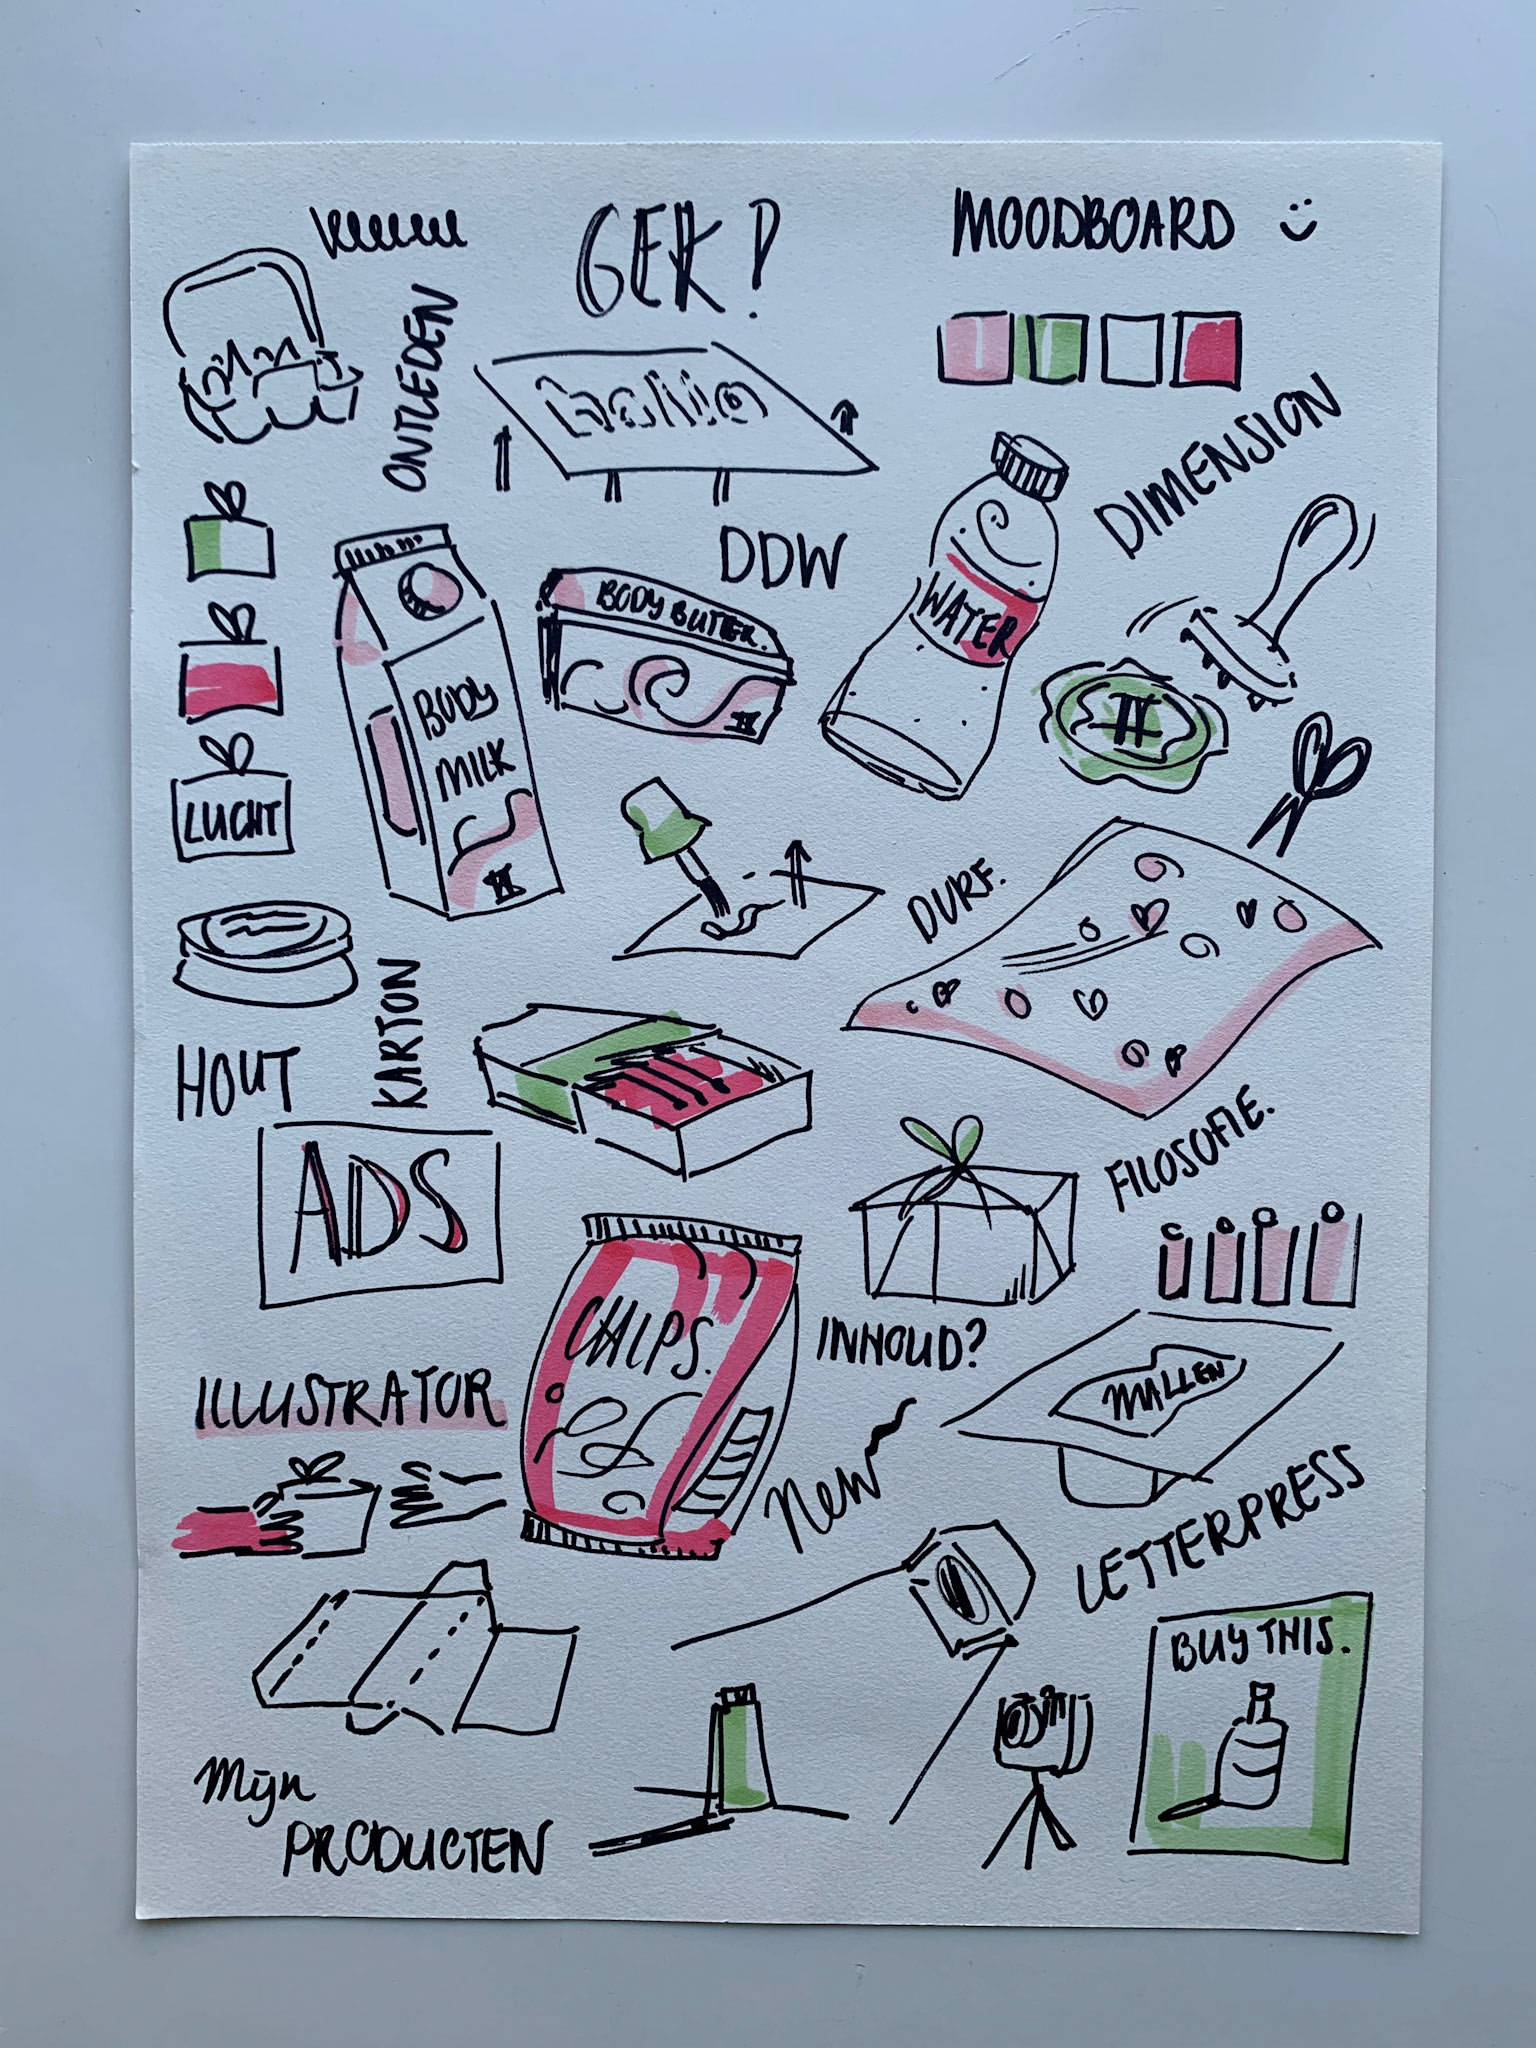 GEK!
MOODBOARD
ONTLEDEN
Hallo
DIMENSION
DDW
BODY BUTTER.
WATER
BODY
MILK
LUCHT
DURF.
KARTON
HOUT
FILOSOFIE.
ADS
CHIPS.
INHOUD?
MALLEN
ILLUSTRATOR
New
LETTERPRESS
BUY THIS.
Mijn
PRODUCTEN